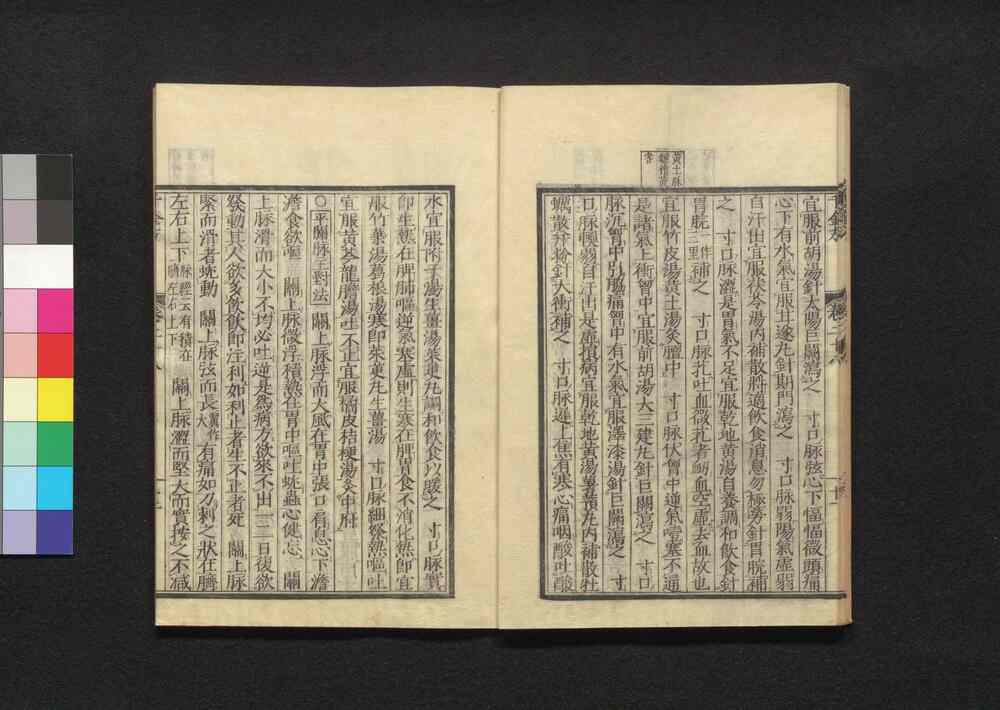 宜服前胡湯針太陽巨闕瀉之　寸口脉弦心下愊愊微頭痛
心下有水氣宜服甘遂丸針期門瀉之　寸口脉弱陽氣虛弱
自汗出宜服茯苓湯内補散將適飲食消息勿極勞針胃脘補
之　寸口脉澀是胃氣不足宜服乾地黄湯自養調和飲食針
胃脘作三里補之　寸口脉芤吐血微芤者衂血空虛去血故也
宜服竹皮湯黄土湯灸膻中　寸口脉伏胷中逆氣噎塞不通
是諸氣上衝胷中宜服前胡湯大三建丸針巨闕瀉之　寸口
脉沉胷中引脇痛胷中有水氣宜服澤漆湯針巨闕瀉之　寸
口脉愞弱自汗出是虛損病宜服乾地黄湯薯蕷丸内補散牡
蠣散并粉針大衝補之　寸口脉遲上焦有寒心痛咽酸吐酸
水宜服附子湯生薑湯茱萸丸調和飲食以暖之　寸口脉實
即生熱在脾肺嘔逆氣塞虛則生寒在脾胃食不消化熱即宜
服竹葉湯葛根湯寒即茱萸丸生薑湯　寸口脉細發熱嘔吐
宜服黄芩龍膽湯吐不止宜服橘皮桔梗湯灸中府
○平關脉主對法　關上脉浮而大風在胃中張口肩息心下澹
澹食欲嘔　關上脉微浮積熱在胃中嘔吐蚘蟲心健忘　關
上脉滑而大小不均必吐逆是爲病方欲來不出一二日復欲
發動其人欲多飲飲即注利如利止者生不止者死　關上脉
緊而滑者蚘動　關上脉弦而長翼作大有痛如刀刺之狀在臍
左右上下脉經云有積在臍左右上下　關上脉澀而堅大而實按之不減